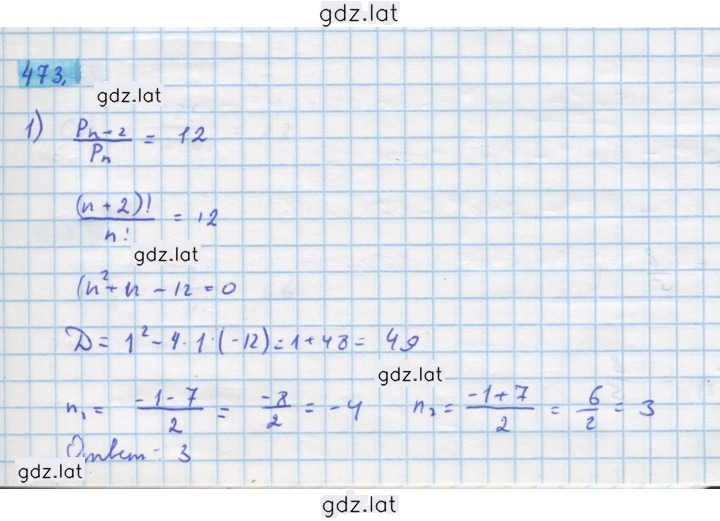 gdz.lat
473.
gdz.lat
1) Pn-2 / Pn = 12
(n+2)! / n! = 12
gdz.lat
(n² + n - 12 = 0
D = 1² - 4·1·(-12) = 1 + 48 = 49
gdz.lat
n₁ = (-1-7)/2 = -8/2 = -4 n₂ = (-1+7)/2 = 6/2 = 3
Ответ: 3
gdz.lat
gdz.lat